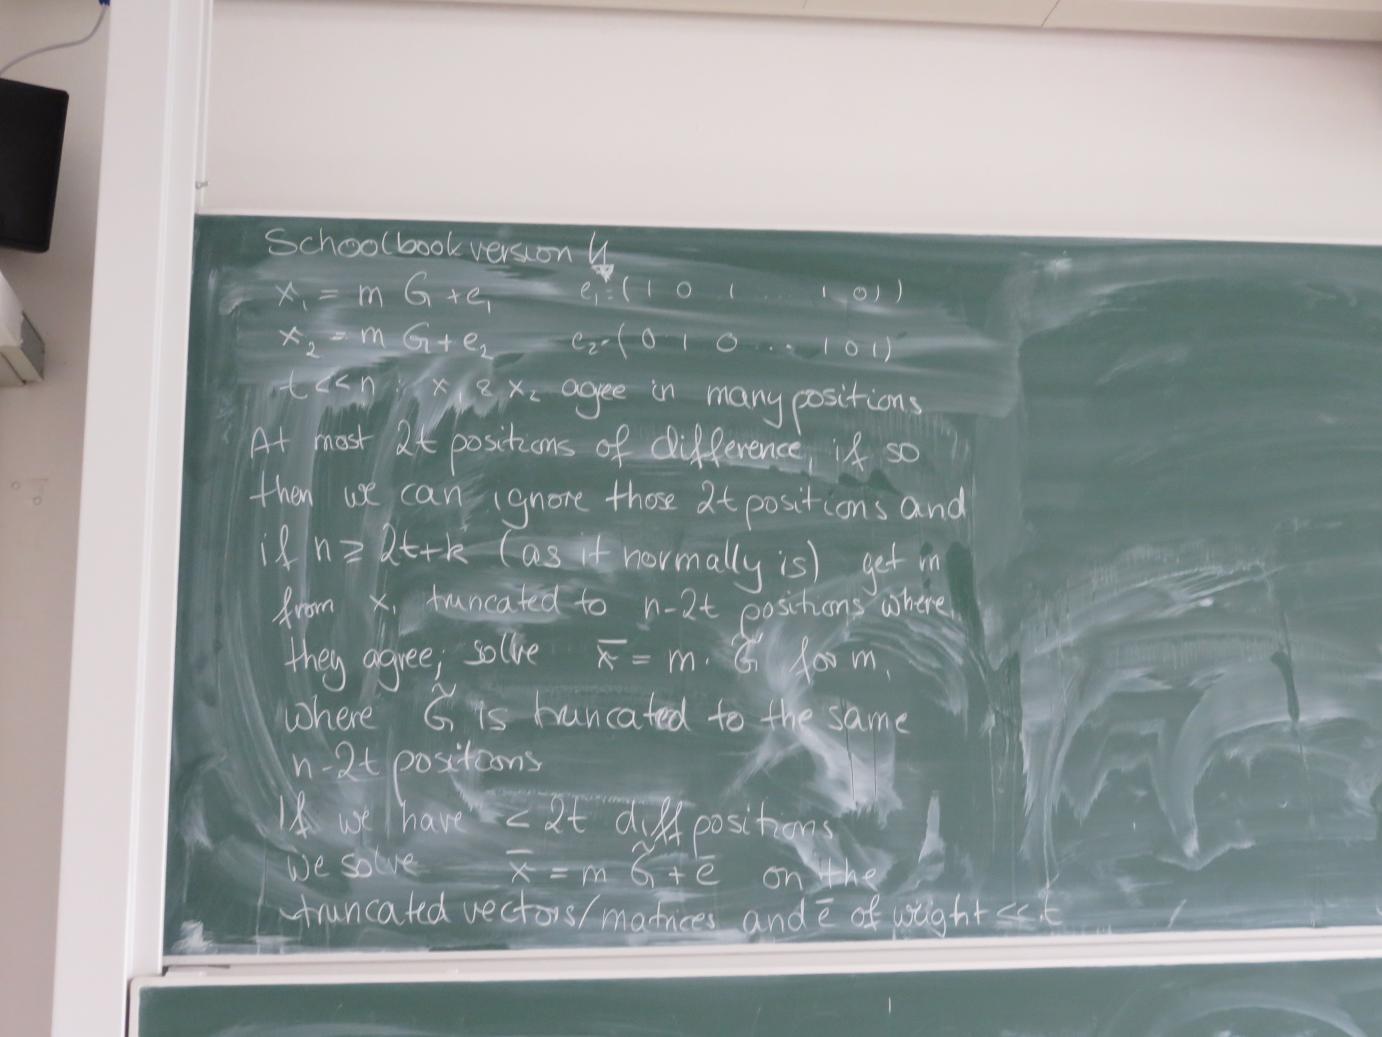 Schoolbook version 4
x₁ = m G + e₁ e₁ = ( 1 0 1 ... 1 0 1 )
x₂ = m G + e₂ e₂ = ( 0 1 0 ... 1 0 1 )
t << n : x₁ & x₂ agree in many positions
At most 2t positions of difference, if so
then we can ignore those 2t positions and
if n ≥ 2t+k (as it normally is) get m
from x₁ truncated to n-2t positions where
they agree; solve x̄ = m · G̃ for m,
where G̃ is truncated to the same
n-2t positions
If we have < 2t diff positions
we solve x̄ = m G̃ + ē on the
truncated vectors/matrices and ē of wright << t